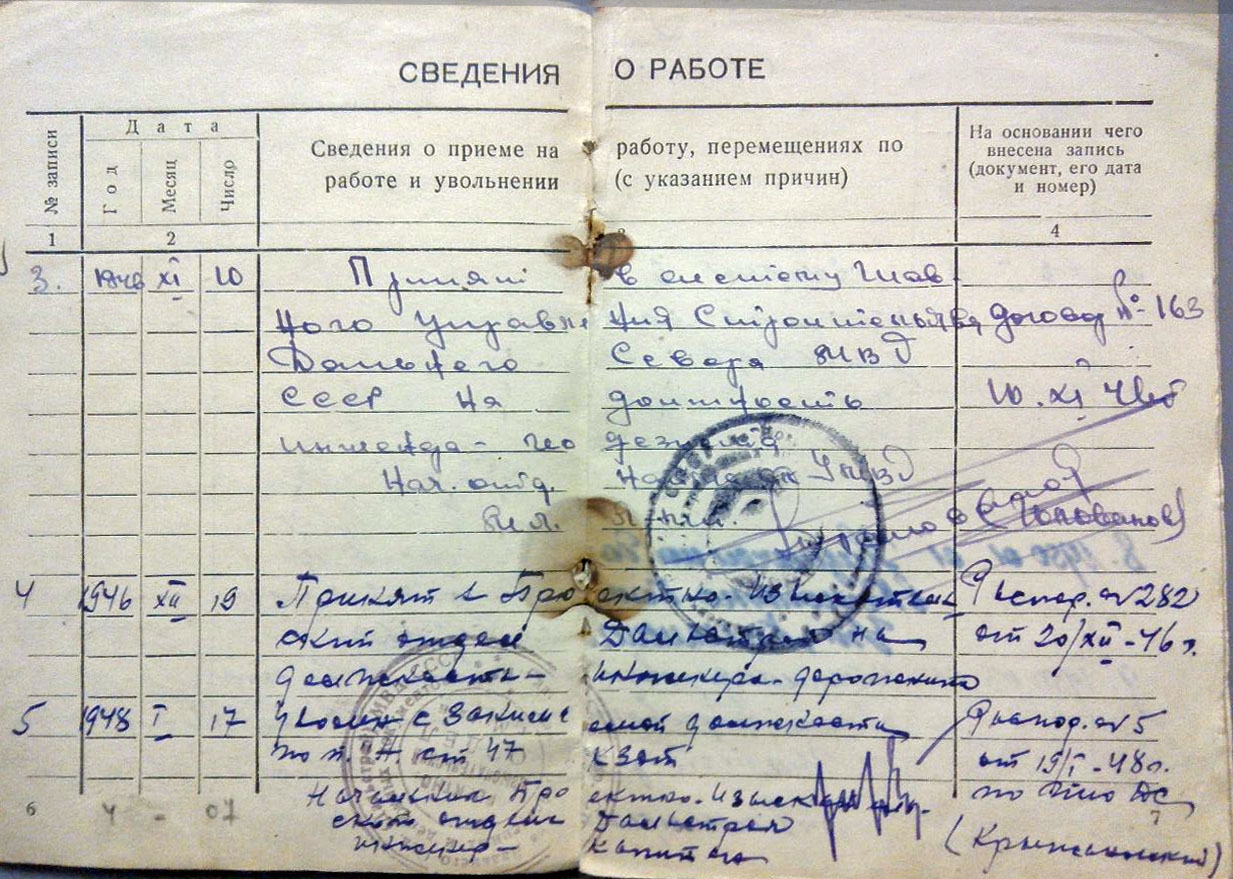 СВЕДЕНИЯ О РАБОТЕ
№ записи
Дата
Год
Месяц
Число
Сведения о приеме на работу, перемещениях по
работе и увольнении (с указанием причин)
На основании чего
внесена запись
(документ, его дата
и номер)
1 2 3 4
3. 1946 XI 10 Принят в систему Глав-
ного управления Строительства договор № 163
Дальнего Севера МВД
СССР на должность 10.XI 46г
инженера-геодезиста
Нач. отд.
4 1946 XII 19 Принят в Проектно-Изыскатель Распор. № 282
ский отдел Дальстроя на от 20/XII-46 г.
должность инженера-дорожника
5 1948 I 17 Уволен с занимаемой должности Распор. № 5
по п. А. ст 47 КЗОТ от 19/I-48г.
Начальник Проектно-Изыскатель- по ПИО ДС
ского отдела Дальстроя
инженер-капитан (Крыжановский)
6 7